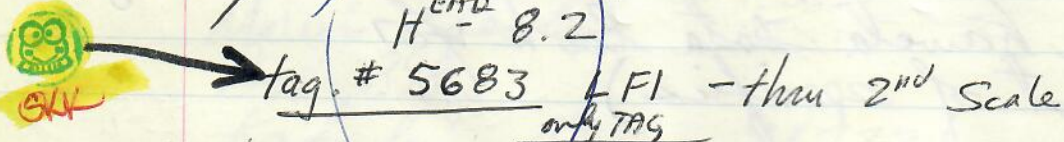 H - 8.2
tag. # 5683 LFI - thru 2nd Scale
only TAG